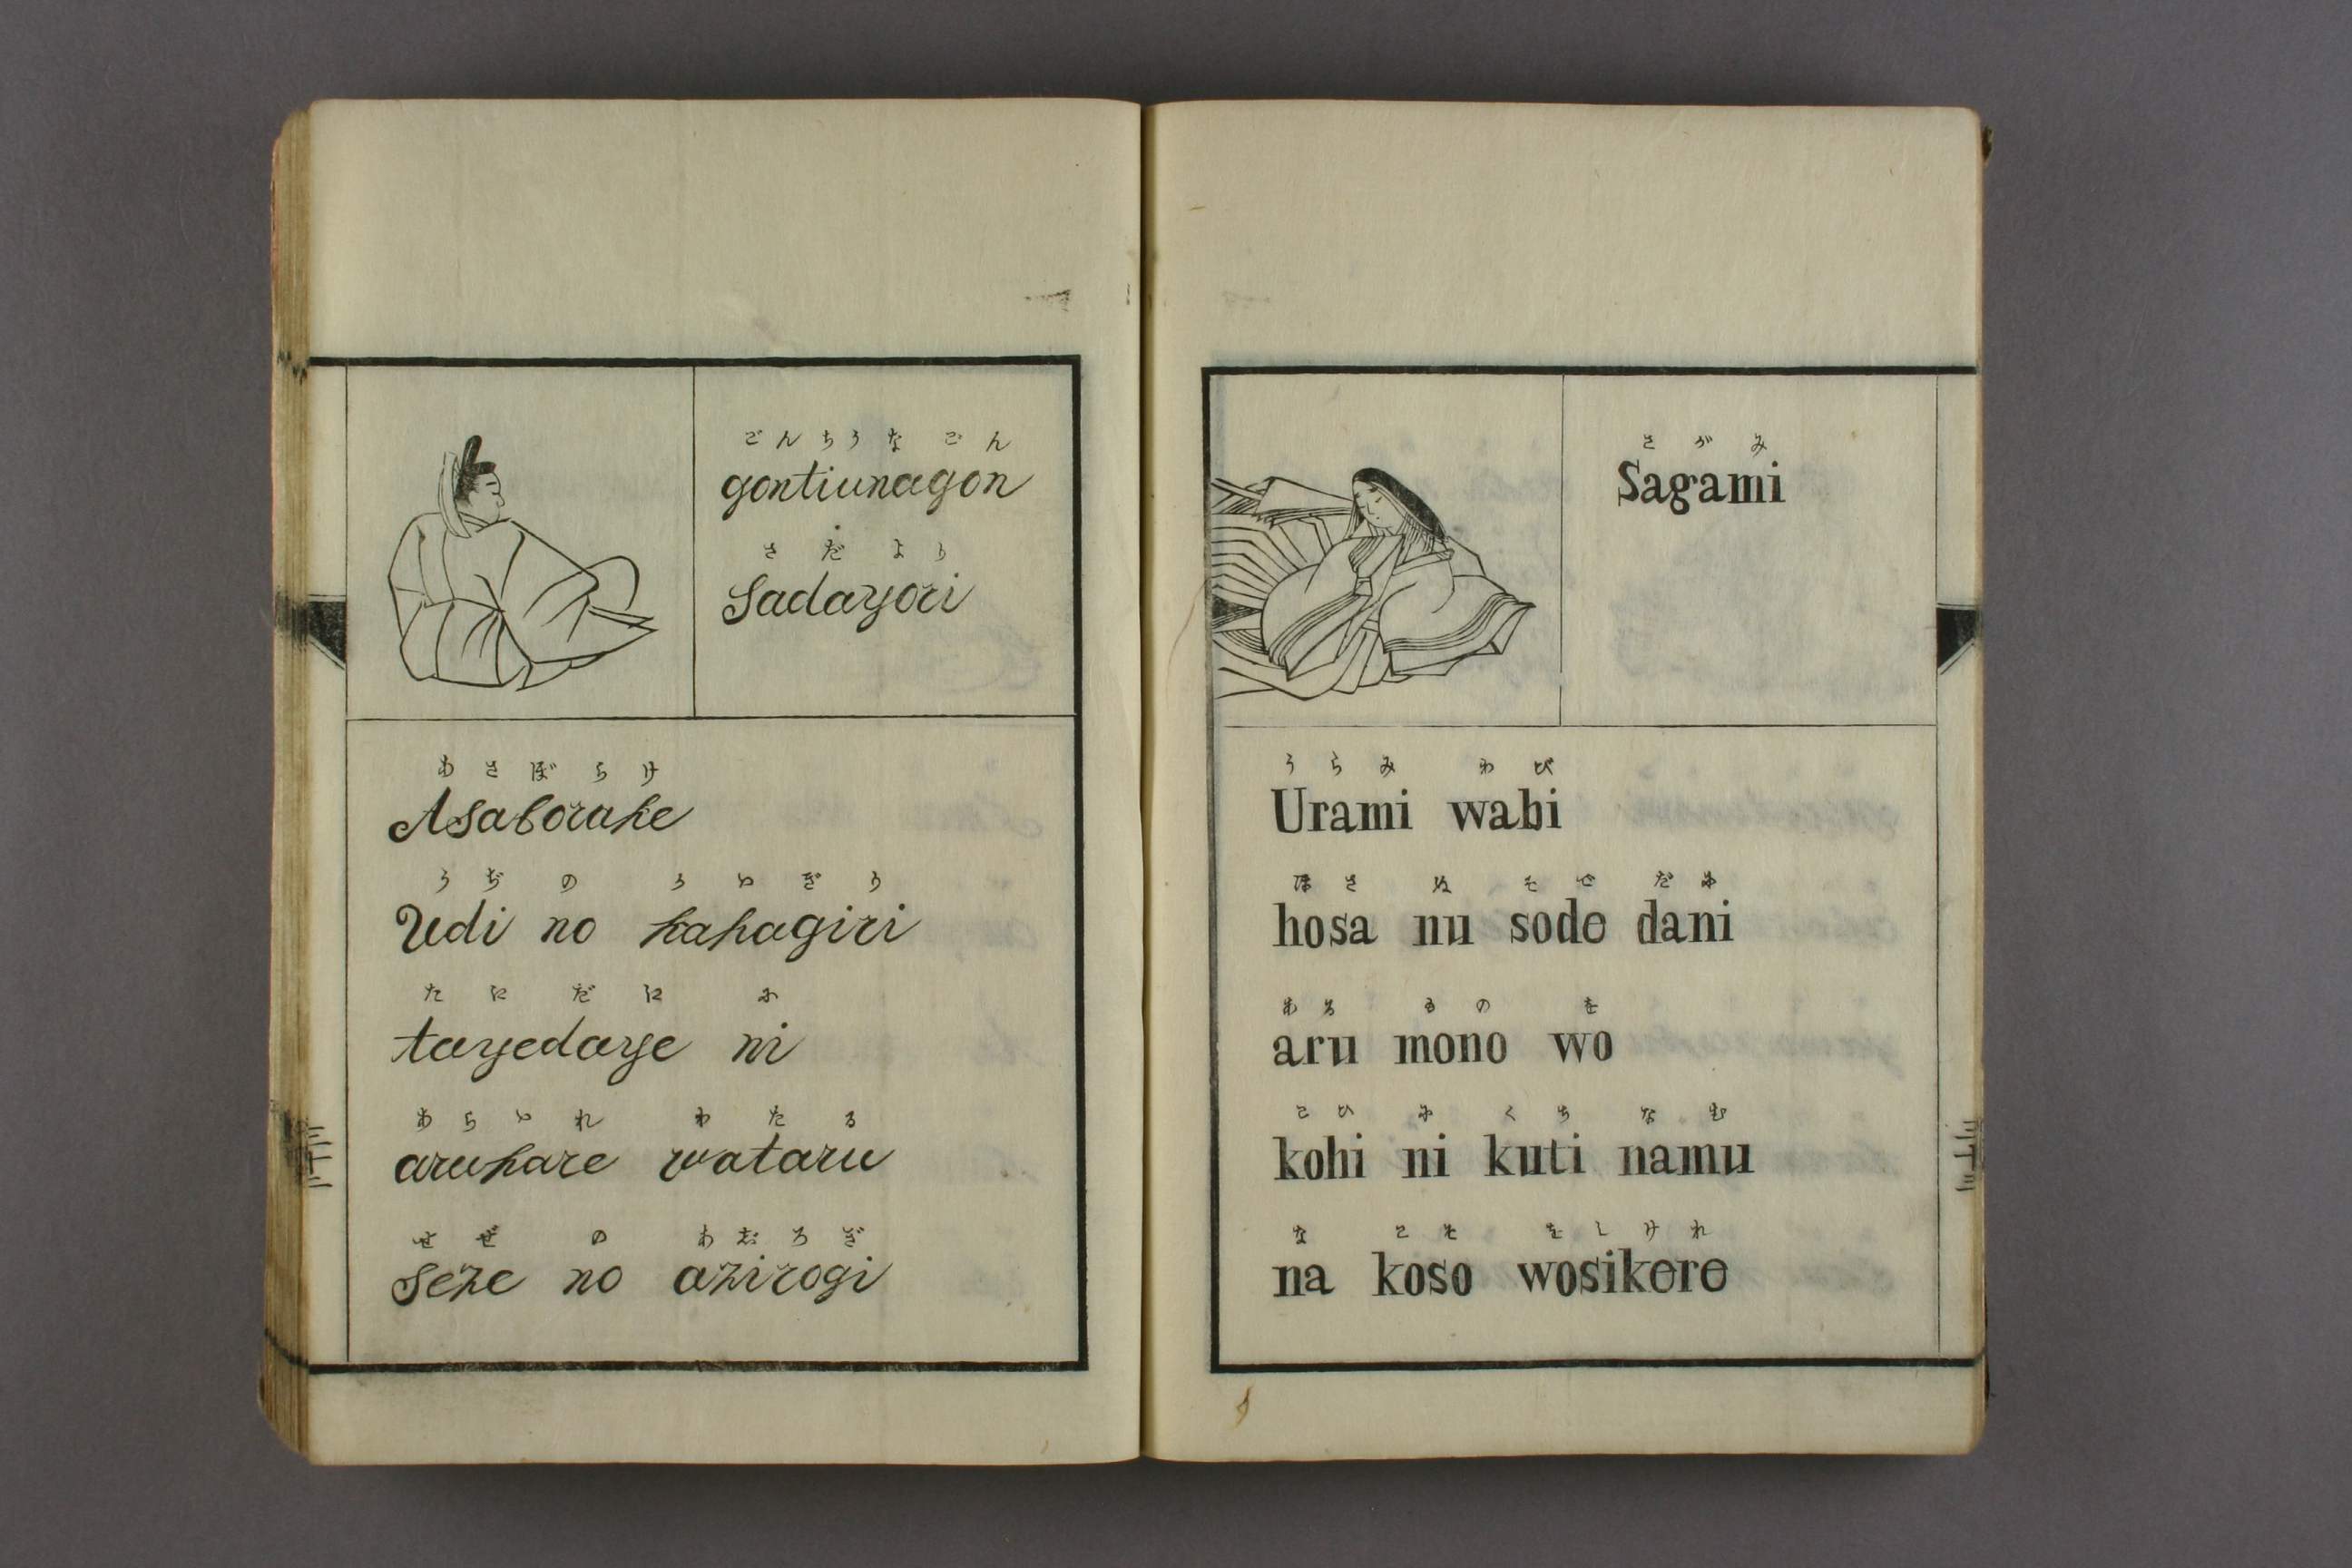 ごんちうなごん
gontiunagon
さだより
Sadayori
あさぼらけ
Asaborake
うぢ の かはぎり
Udi no kahagiri
たえだえ に
tayedaye ni
あらはれ わたる
arahare wataru
せぜ の あじろぎ
seze no azirogi
さがみ
Sagami
うらみ わび
Urami wabi
ほさ ぬ そで だに
hosa nu sode dani
ある もの を
aru mono wo
こひ に くち なむ
kohi ni kuti namu
な こそ をしけれ
na koso wosikere